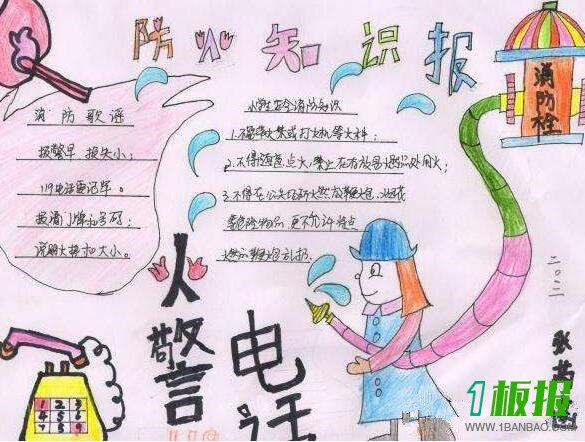 防火知识报
消防歌谣
报警早 损失小；
119电话要记牢。
报清门牌和号码；
说明火势和大小。
小学生安全消防知识
1.不要带火柴或打火机等火种；
2.不得随意点火，禁止在有易燃品处用火；
3.不得在公共场所燃放鞭炮，
更不允许将点
燃的鞭炮乱扔。
消防栓
火警电话
119
1 2 3
4 5 6
二〇一一
张
1板报
WWW.1BANBAO.COM